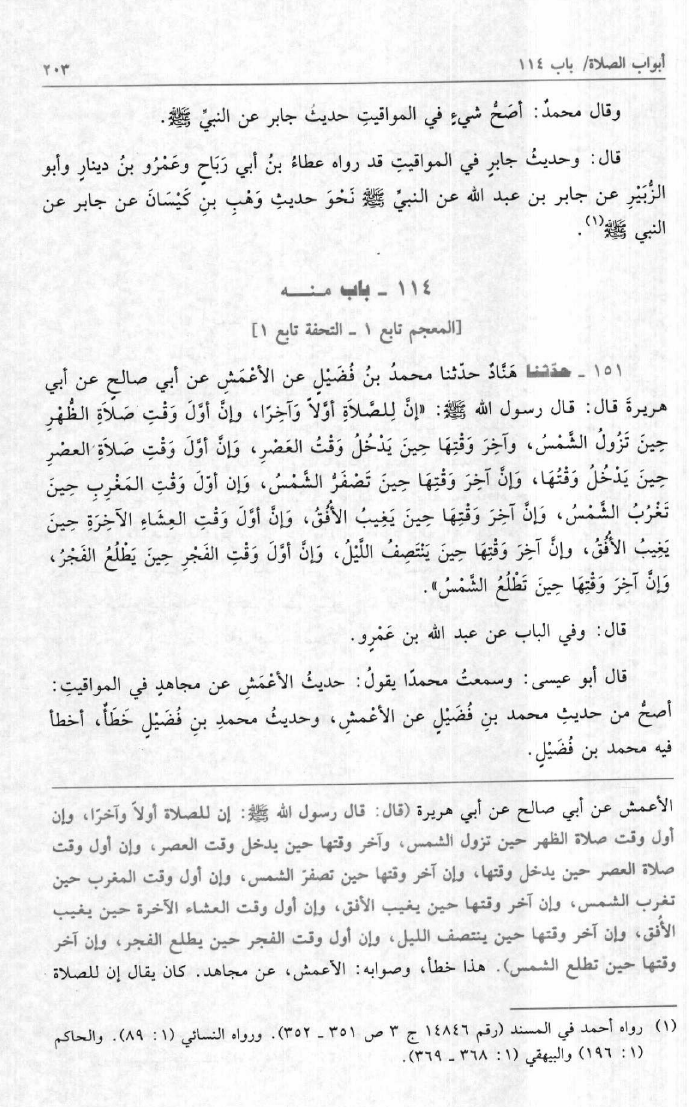 أبواب الصلاة/ باب ١١٤
٢٠٣
وقال محمدٌ: أصَحُّ شيءٍ في المواقيتِ حديثُ جابر عن النبيِّ ﷺ.
قال: وحديثُ جابرٍ في المواقيتِ قد رواه عطاءُ بنُ أبي رَبَاحٍ وعَمْرُو بنُ دينارٍ وأبو
الزُّبَيْرِ عن جابر بن عبد الله عن النبيِّ ﷺ نَحْوَ حديثِ وَهْبِ بنِ كَيْسَانَ عن جابر عن
النبي ﷺ(١).
١١٤ ـ باب منه
[المعجم تابع ١ ـ التحفة تابع ١]
١٥١ ـ حدّثنا هَنَّادٌ حدّثنا محمدُ بنُ فُضَيْلٍ عن الأعْمَشِ عن أبي صالحٍ عن أبي
هريرةَ قال: قال رسول الله ﷺ: «إنَّ لِلصَّلاَةِ أوَّلاً وَآخِرًا، وإنَّ أوَّلَ وَقْتِ صَلاَةِ الظُّهْرِ
حِينَ تَزُولُ الشَّمْسُ، وآخِرَ وَقْتِهَا حِينَ يَدْخُلُ وَقْتُ العَصْرِ، وَإنَّ أوَّلَ وَقْتِ صَلاَةِ العصْرِ
حِينَ يَدْخُلُ وَقْتُهَا، وَإنَّ آخِرَ وَقْتِهَا حِينَ تَصْفَرُّ الشَّمْسُ، وَإن أوّلَ وَقْتِ المَغْرِبِ حِينَ
تَغْرُبُ الشَّمْسُ، وَإنَّ آخِرَ وَقْتِهَا حِينَ يَغِيبُ الأُفُقُ، وَإنَّ أوَّلَ وَقْتِ العِشَاءِ الآخِرَةِ حِينَ
يَغِيبُ الأُفُقُ، وإنَّ آخِرَ وَقْتِهَا حِينَ يَنْتَصِفُ اللَّيْلُ، وَإنَّ أوَّلَ وَقْتِ الفَجْرِ حِينَ يَطْلُعُ الفَجْرُ،
وَإنَّ آخِرَ وَقْتِهَا حِينَ تَطْلُعُ الشَّمْسُ».
قال: وفي الباب عن عبد الله بن عَمْرٍو.
قال أبو عيسى: وسمعتُ محمدًا يقولُ: حديثُ الأعْمَشِ عن مجاهدٍ في المواقيتِ:
أصحُّ من حديثِ محمد بنِ فُضَيْلٍ عن الأعْمشِ، وحديثُ محمدِ بنِ فُضَيْلٍ خَطَأٌ، أخطأ
فيه محمد بن فُضَيْلٍ.
الأعمش عن أبي صالح عن أبي هريرة (قال: قال رسول الله ﷺ: إن للصلاة أولاً وآخرًا، وإن
أول وقت صلاة الظهر حين تزول الشمس، وآخر وقتها حين يدخل وقت العصر، وإن أول وقت
صلاة العصر حين يدخل وقتها، وإن آخر وقتها حين تصفرّ الشمس، وإن أول وقت المغرب حين
تغرب الشمس، وإن آخر وقتها حين يغيب الأفق، وإن أول وقت العشاء الآخرة حين يغيب
الأُفق، وإن آخر وقتها حين ينتصف الليل، وإن أول وقت الفجر حين يطلع الفجر، وإن آخر
وقتها حين تطلع الشمس). هذا خطأ، وصوابه: الأعمش، عن مجاهد. كان يقال إن للصلاة
(١) رواه أحمد في المسند (رقم ١٤٨٤٦ ج ٣ ص ٣٥١ ـ ٣٥٢). ورواه النسائي (١: ٨٩). والحاكم
(١: ١٩٦) والبيهقي (١: ٣٦٨ ـ ٣٦٩).